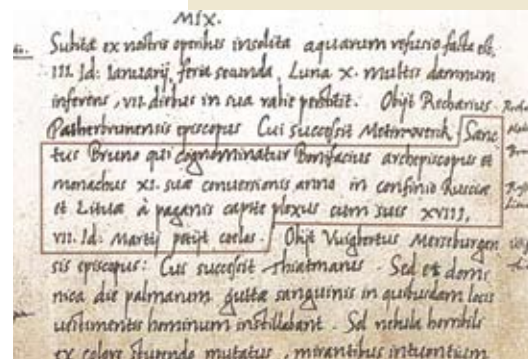 MIX.
Subita ex nostris operibus insolita aquarum refusio facta est,
III. Id: Ianuarij, feria secunda, Luna X. multis damnum
inferens, VII. diebus in sua rabie perstitit. Obijt Recharius
Patherbrunensis episcopus Cui successit Meinwerck. Sanc
tus Bruno qui cognominatur Bonifacius archepiscopus et
monachus XI. suæ conuersionis anno in confinio Rusciæ
et Lituæ à paganis capite plexus cum suis XVIII,
VII. Id: Martij petijt coelos. Obijt Vuigbertus Merseburgen
sis episcopus: Cui successit Thiatmarus. Sed et domi
nica die palmarum guttæ sanguinis in quibusdam locis
uestimentis hominum instillabant. Sol nebula horribili
ex colore stupendo mutatus, mirantibus intuentium